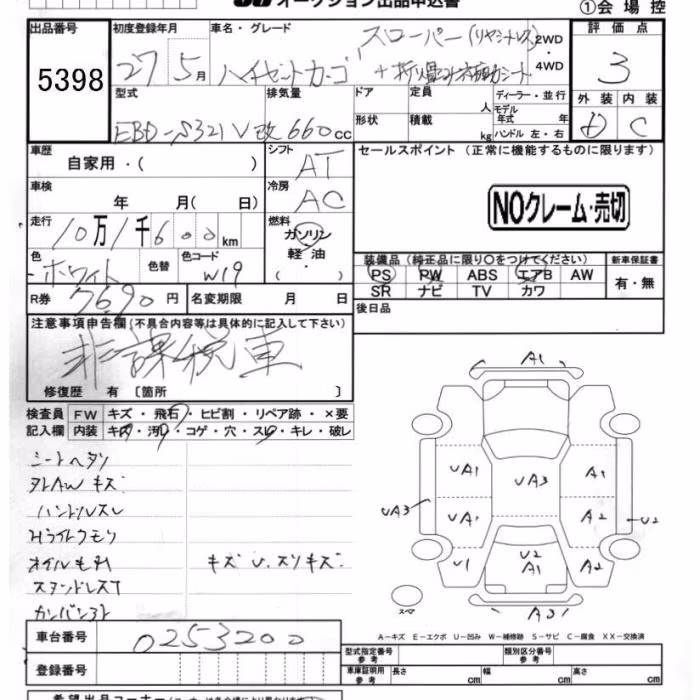 オークション出品申込書
①会場控
出品番号
5398
初度登録年月
27 5月
車名・グレード
スローパー(リヤシートレス)
ハイゼットカーゴ
2WD・4WD
評価点
3
型式
EBD-S321V改
排気量
660cc
ドア
形状
定員 人
積載 kg
ディーラー・並行
モデル年式 年
ハンドル 左・右
外装 内装
D C
車歴
自家用・( )
シフト
AT
セールスポイント (正常に機能するものに限ります)
車検
年 月( 日)
冷房
AC
NOクレーム・売切
走行
10万1千600km
燃料
ガソリン
軽油
・( )
色
ホワイト
色替
色コード
W19
装備品(純正品に限り○をつけてください)
PS PW ABS エアB AW
SR ナビ TV カワ
新車保証書
有・無
R券
7690円
名変期限 月 日
後日品
注意事項申告欄(不具合内容等は具体的に記入して下さい)
非課税車
修復歴 有〔箇所 〕
検査員記入欄
FW キズ・飛石・ヒビ割・リペア跡・×要
内装 キズ・汚レ・コゲ・穴・スレ・キレ・破レ
シートヘタリ
ハンドルスレ
Hライトクモリ
オイルモレ
キズ U、スリキズ
A1
UA1 UA3 A1
UA3 UA1 A2 U2
U1 U2 A1 A2
A3
スペア
A-キズ E-エクボ U-凹み W-補修跡 S-サビ C-腐食 XX-交換済
車台番号
0253200
登録番号
型式指定番号 参考
類別区分番号 参考
車庫証明用 参考
長さ cm 幅 cm 高さ cm